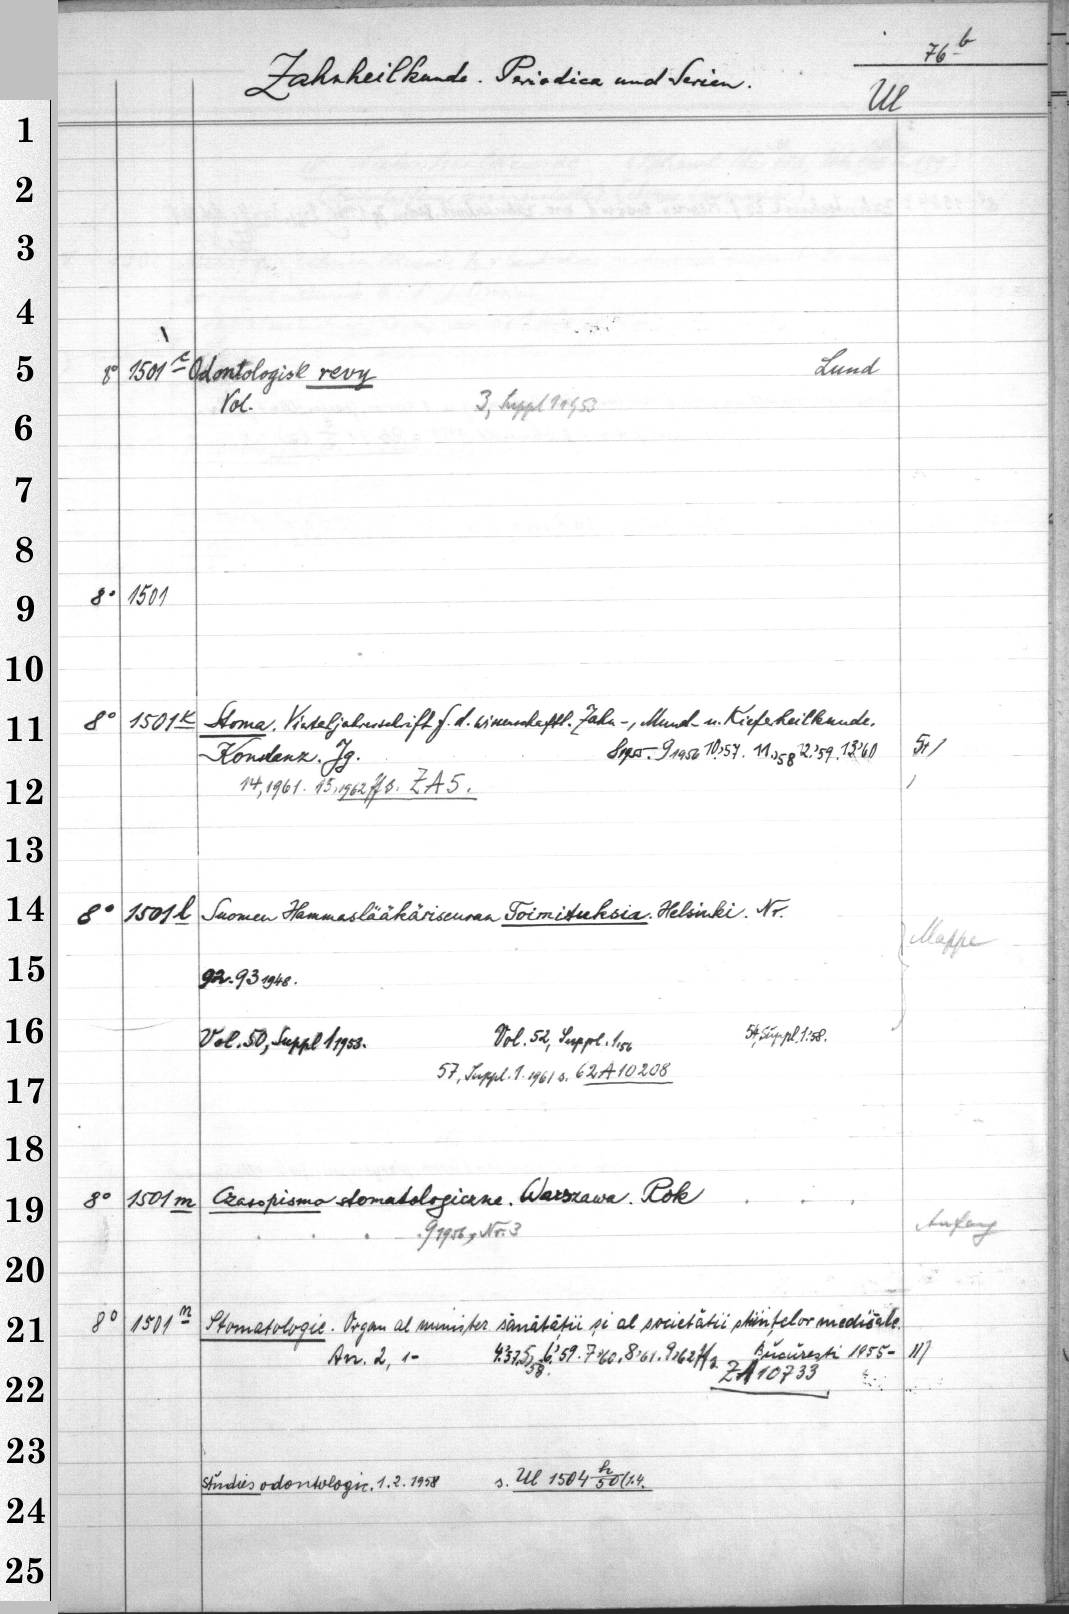 76 b
Zahnheilkunde. Periodica und Serien.
Ul
1
2
3
4
5
8° 1501 Odontologisk revy Lund
Vol. 3, Suppl 1 1953
6
7
8
9
8° 1501
10
11
8° 1501 k Stoma. Vierteljahresschrift f. d. wissenschaftl. Zahn-, Mund- u. Kieferheilkunde.
Konstanz. Jg. 9 1956 10.'57. 11.'58 12.'59. 13.'60
12
14, 1961. 15, 1962 ff s. ZA 5.
13
14
8° 1501 l Suomen Hammaslääkäriseuran Toimituksia. Helsinki. Nr.
Mappe
15
92.-93 1948.
16
Vol. 50, Suppl 1 1953. Vol. 52, Suppl. 1.'56 54, Suppl. 1.'58.
57, Suppl. 1. 1961 s. 62 A 10208
17
18
19
8° 1501 m Czasopismo stomatologiczne. Warszawa. Rok
9 1956, Nr. 3 Anfang
20
21
8° 1501 n Stomatologie. Organ al minister sănătăţii şi al societăţii ştiinţelor medicale.
An. 2, 1- 4.'57. 5,'58. 6.'59. 7.'60. 8.'61. 9.'62 ff s. Bŭcŭreşti 1955-
ZA 10733
22
23
Studies odontologic. 1. 2. 1958 s. Ul 1504 h/50 (1.4.
24
25